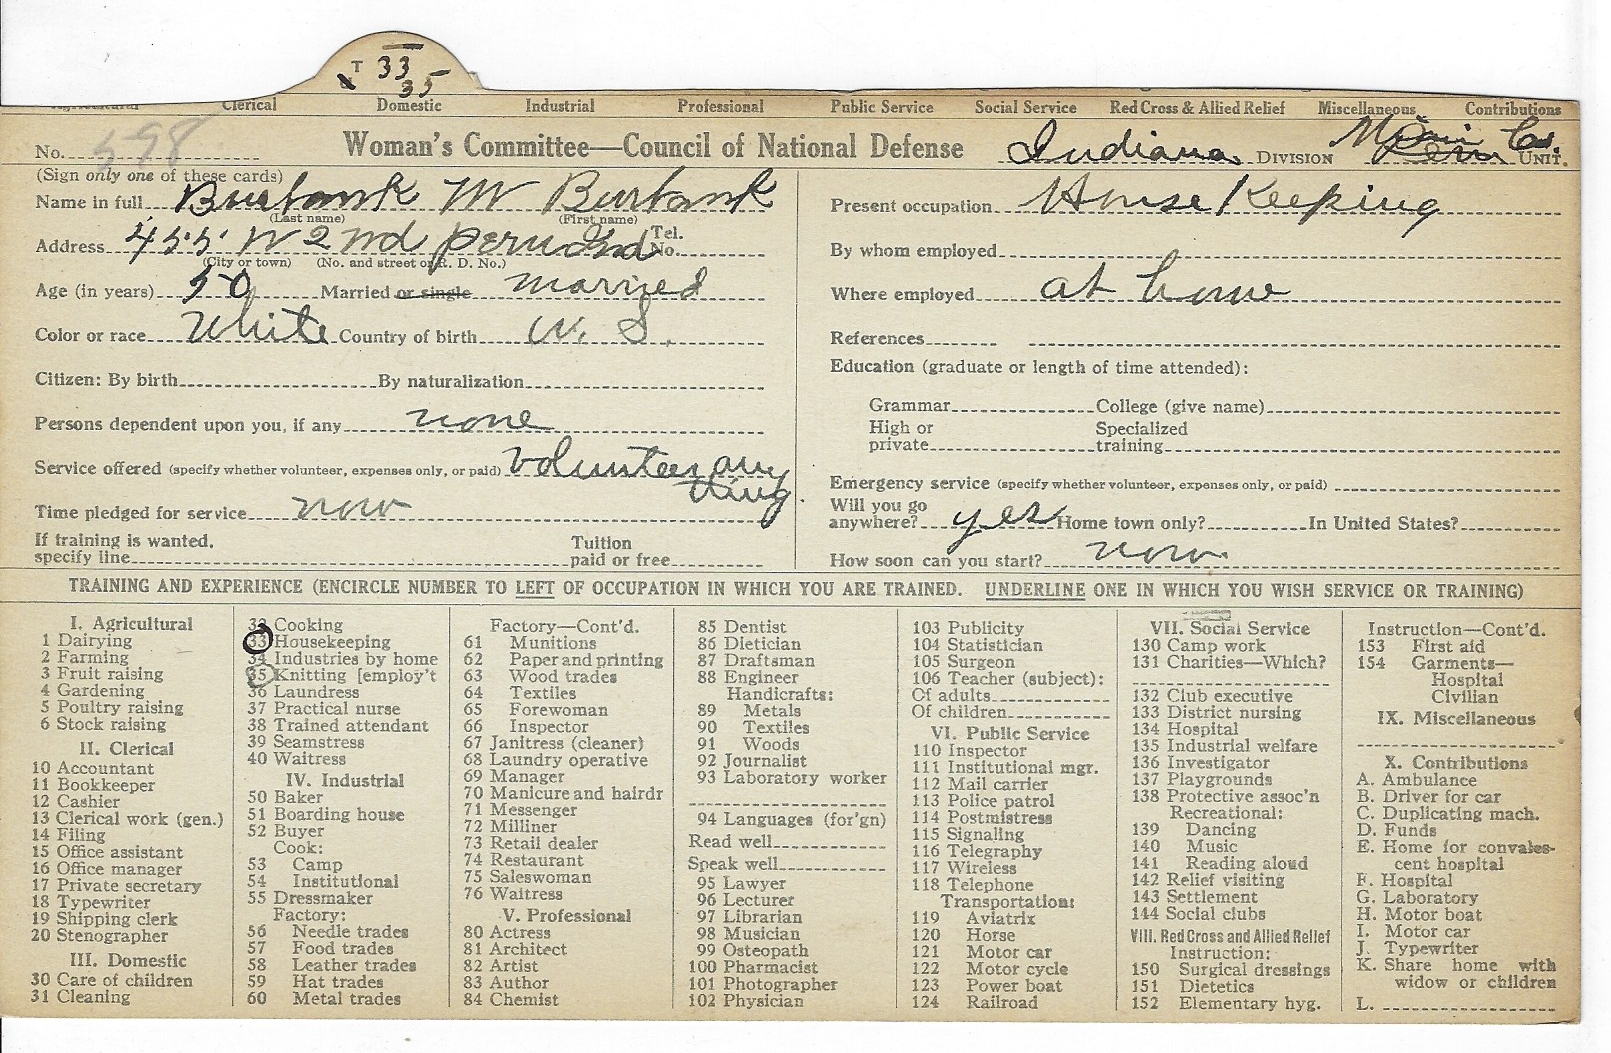 T 33
35
Clerical Domestic Industrial Professional Public Service Social Service Red Cross & Allied Relief Miscellaneous Contributions
No. 598
Woman's Committee—Council of National Defense Indiana DIVISION Miami Co. UNIT.
(Sign only one of these cards)
Name in full Burbank M Burbank
(Last name) (First name)
Address 455 W 2nd peru Ind Tel. No.
(City or town) (No. and street or R. D. No.)
Age (in years) 50 Married or single married
Color or race White Country of birth U. S.
Citizen: By birth By naturalization
Persons dependent upon you, if any none
Service offered (specify whether volunteer, expenses only, or paid) volunteer any
thing.
Time pledged for service now
If training is wanted, specify line Tuition paid or free
Present occupation House Keeping
By whom employed
Where employed at home
References
Education (graduate or length of time attended):
Grammar College (give name)
High or private Specialized training
Emergency service (specify whether volunteer, expenses only, or paid)
Will you go anywhere? yes Home town only? In United States?
How soon can you start? now
TRAINING AND EXPERIENCE (ENCIRCLE NUMBER TO LEFT OF OCCUPATION IN WHICH YOU ARE TRAINED. UNDERLINE ONE IN WHICH YOU WISH SERVICE OR TRAINING)
I. Agricultural
1 Dairying
2 Farming
3 Fruit raising
4 Gardening
5 Poultry raising
6 Stock raising
II. Clerical
10 Accountant
11 Bookkeeper
12 Cashier
13 Clerical work (gen.)
14 Filing
15 Office assistant
16 Office manager
17 Private secretary
18 Typewriter
19 Shipping clerk
20 Stenographer
III. Domestic
30 Care of children
31 Cleaning
32 Cooking
33 Housekeeping
34 Industries by home
35 Knitting [employ't
36 Laundress
37 Practical nurse
38 Trained attendant
39 Seamstress
40 Waitress
IV. Industrial
50 Baker
51 Boarding house
52 Buyer
Cook:
53 Camp
54 Institutional
55 Dressmaker
Factory:
56 Needle trades
57 Food trades
58 Leather trades
59 Hat trades
60 Metal trades
Factory—Cont'd.
61 Munitions
62 Paper and printing
63 Wood trades
64 Textiles
65 Forewoman
66 Inspector
67 Janitress (cleaner)
68 Laundry operative
69 Manager
70 Manicure and hairdr
71 Messenger
72 Milliner
73 Retail dealer
74 Restaurant
75 Saleswoman
76 Waitress
V. Professional
80 Actress
81 Architect
82 Artist
83 Author
84 Chemist
85 Dentist
86 Dietician
87 Draftsman
88 Engineer
Handicrafts:
89 Metals
90 Textiles
91 Woods
92 Journalist
93 Laboratory worker
94 Languages (for'gn)
Read well
Speak well
95 Lawyer
96 Lecturer
97 Librarian
98 Musician
99 Osteopath
100 Pharmacist
101 Photographer
102 Physician
103 Publicity
104 Statistician
105 Surgeon
106 Teacher (subject):
Of adults
Of children
VI. Public Service
110 Inspector
111 Institutional mgr.
112 Mail carrier
113 Police patrol
114 Postmistress
115 Signaling
116 Telegraphy
117 Wireless
118 Telephone
Transportation:
119 Aviatrix
120 Horse
121 Motor car
122 Motor cycle
123 Power boat
124 Railroad
VII. Social Service
130 Camp work
131 Charities—Which?
132 Club executive
133 District nursing
134 Hospital
135 Industrial welfare
136 Investigator
137 Playgrounds
138 Protective assoc'n
Recreational:
139 Dancing
140 Music
141 Reading aloud
142 Relief visiting
143 Settlement
144 Social clubs
VIII. Red Cross and Allied Relief
Instruction:
150 Surgical dressings
151 Dietetics
152 Elementary hyg.
Instruction—Cont'd.
153 First aid
154 Garments—
Hospital
Civilian
IX. Miscellaneous
X. Contributions
A. Ambulance
B. Driver for car
C. Duplicating mach.
D. Funds
E. Home for convales-
cent hospital
F. Hospital
G. Laboratory
H. Motor boat
I. Motor car
J. Typewriter
K. Share home with
widow or children
L.